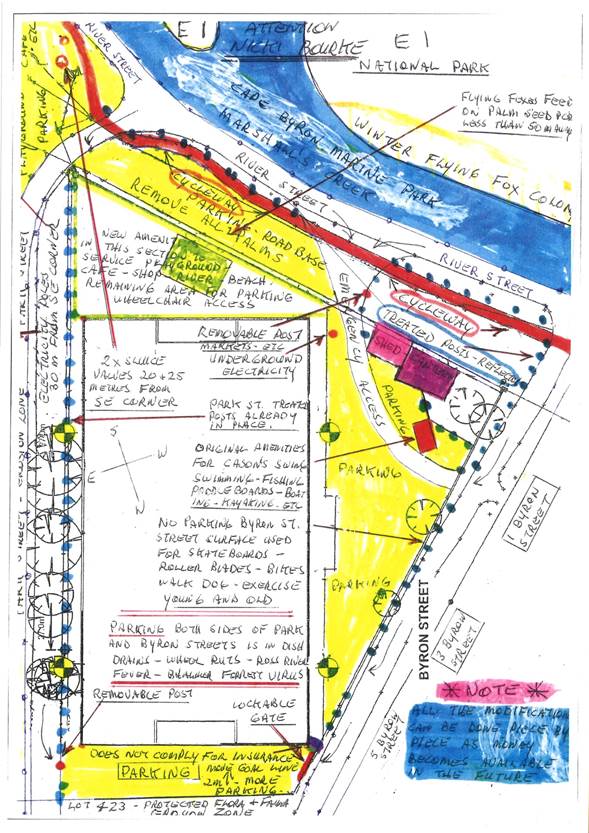 E1 ATTENTION
NICKI BOURKE E1
NATIONAL PARK
RIVER STREET
PARKING
FLYING FOXES FEED
ON PALM SEED POD
LESS THAN 50M AWAY
CAPE BYRON MARINE PARK
MARSHALL'S CREEK
WINTER FLYING FOX COLON
RIVER STREET
CYCLEWAY
PARKING - ROAD BASE
REMOVE ALL PALMS
RIVER STREET
CYCLEWAY
TREATED POSTS - REFLECT
NEW AMENIT
IN THIS SECTION TO
SERVICE PLAYGROUND
CAFE - SHOP - RIVER BEACH.
REMAINING AREA FOR PARKING
WHEELCHAIR ACCESS
EMERGENCY ACCESS
SHED
PARKING
REMOVABLE POST
MARKETS - ETC
UNDERGROUND
ELECTRICITY
2 X SLUICE
VALVES 20 + 25
METRES FROM
SE CORNER
ELECTRICITY POLES
20M FROM SE CORNER
PARK ST. TREATED
POSTS ALREADY
IN PLACE.
ORIGINAL AMENITIES
FOR CASONS SWING
SWIMMING - FISHING
PADDLEBOARDS - BOAT
ING - KAYAKING. ETC
PARKING
S
E W
N
NO PARKING BYRON ST.
STREET SURFACE USED
FOR SKATEBOARDS -
ROLLER BLADES - BIKES
WALK DOG - EXERCISE
YOUNG AND OLD
PARKING
1 BYRON
STREET
BYRON STREET
3 BYRON
STREET
5 BYRON
STREET
PARK STREET - EROSION ZONE
PARK STREET
PARKING BOTH SIDES OF PARK
AND BYRON STREETS IS IN DISH
DRAINS - WHEEL RUTS - ROSS RIVER
FEVER - BRAHMER FORREST VIRUS
REMOVABLE POST
LOCKABLE
GATE
* NOTE *
ALL THE MODIFICATION
CAN BE DONE PIECE BY
PIECE AS MONEY
BECOMES AVAILABLE
IN THE FUTURE
DOES NOT COMPLY FOR INSURANCE
PARKING MOVE GOAL LINE
2M - MORE
PARKING.
LOT 423 - PROTECTED FLORA & FAUNA
EROSION ZONE